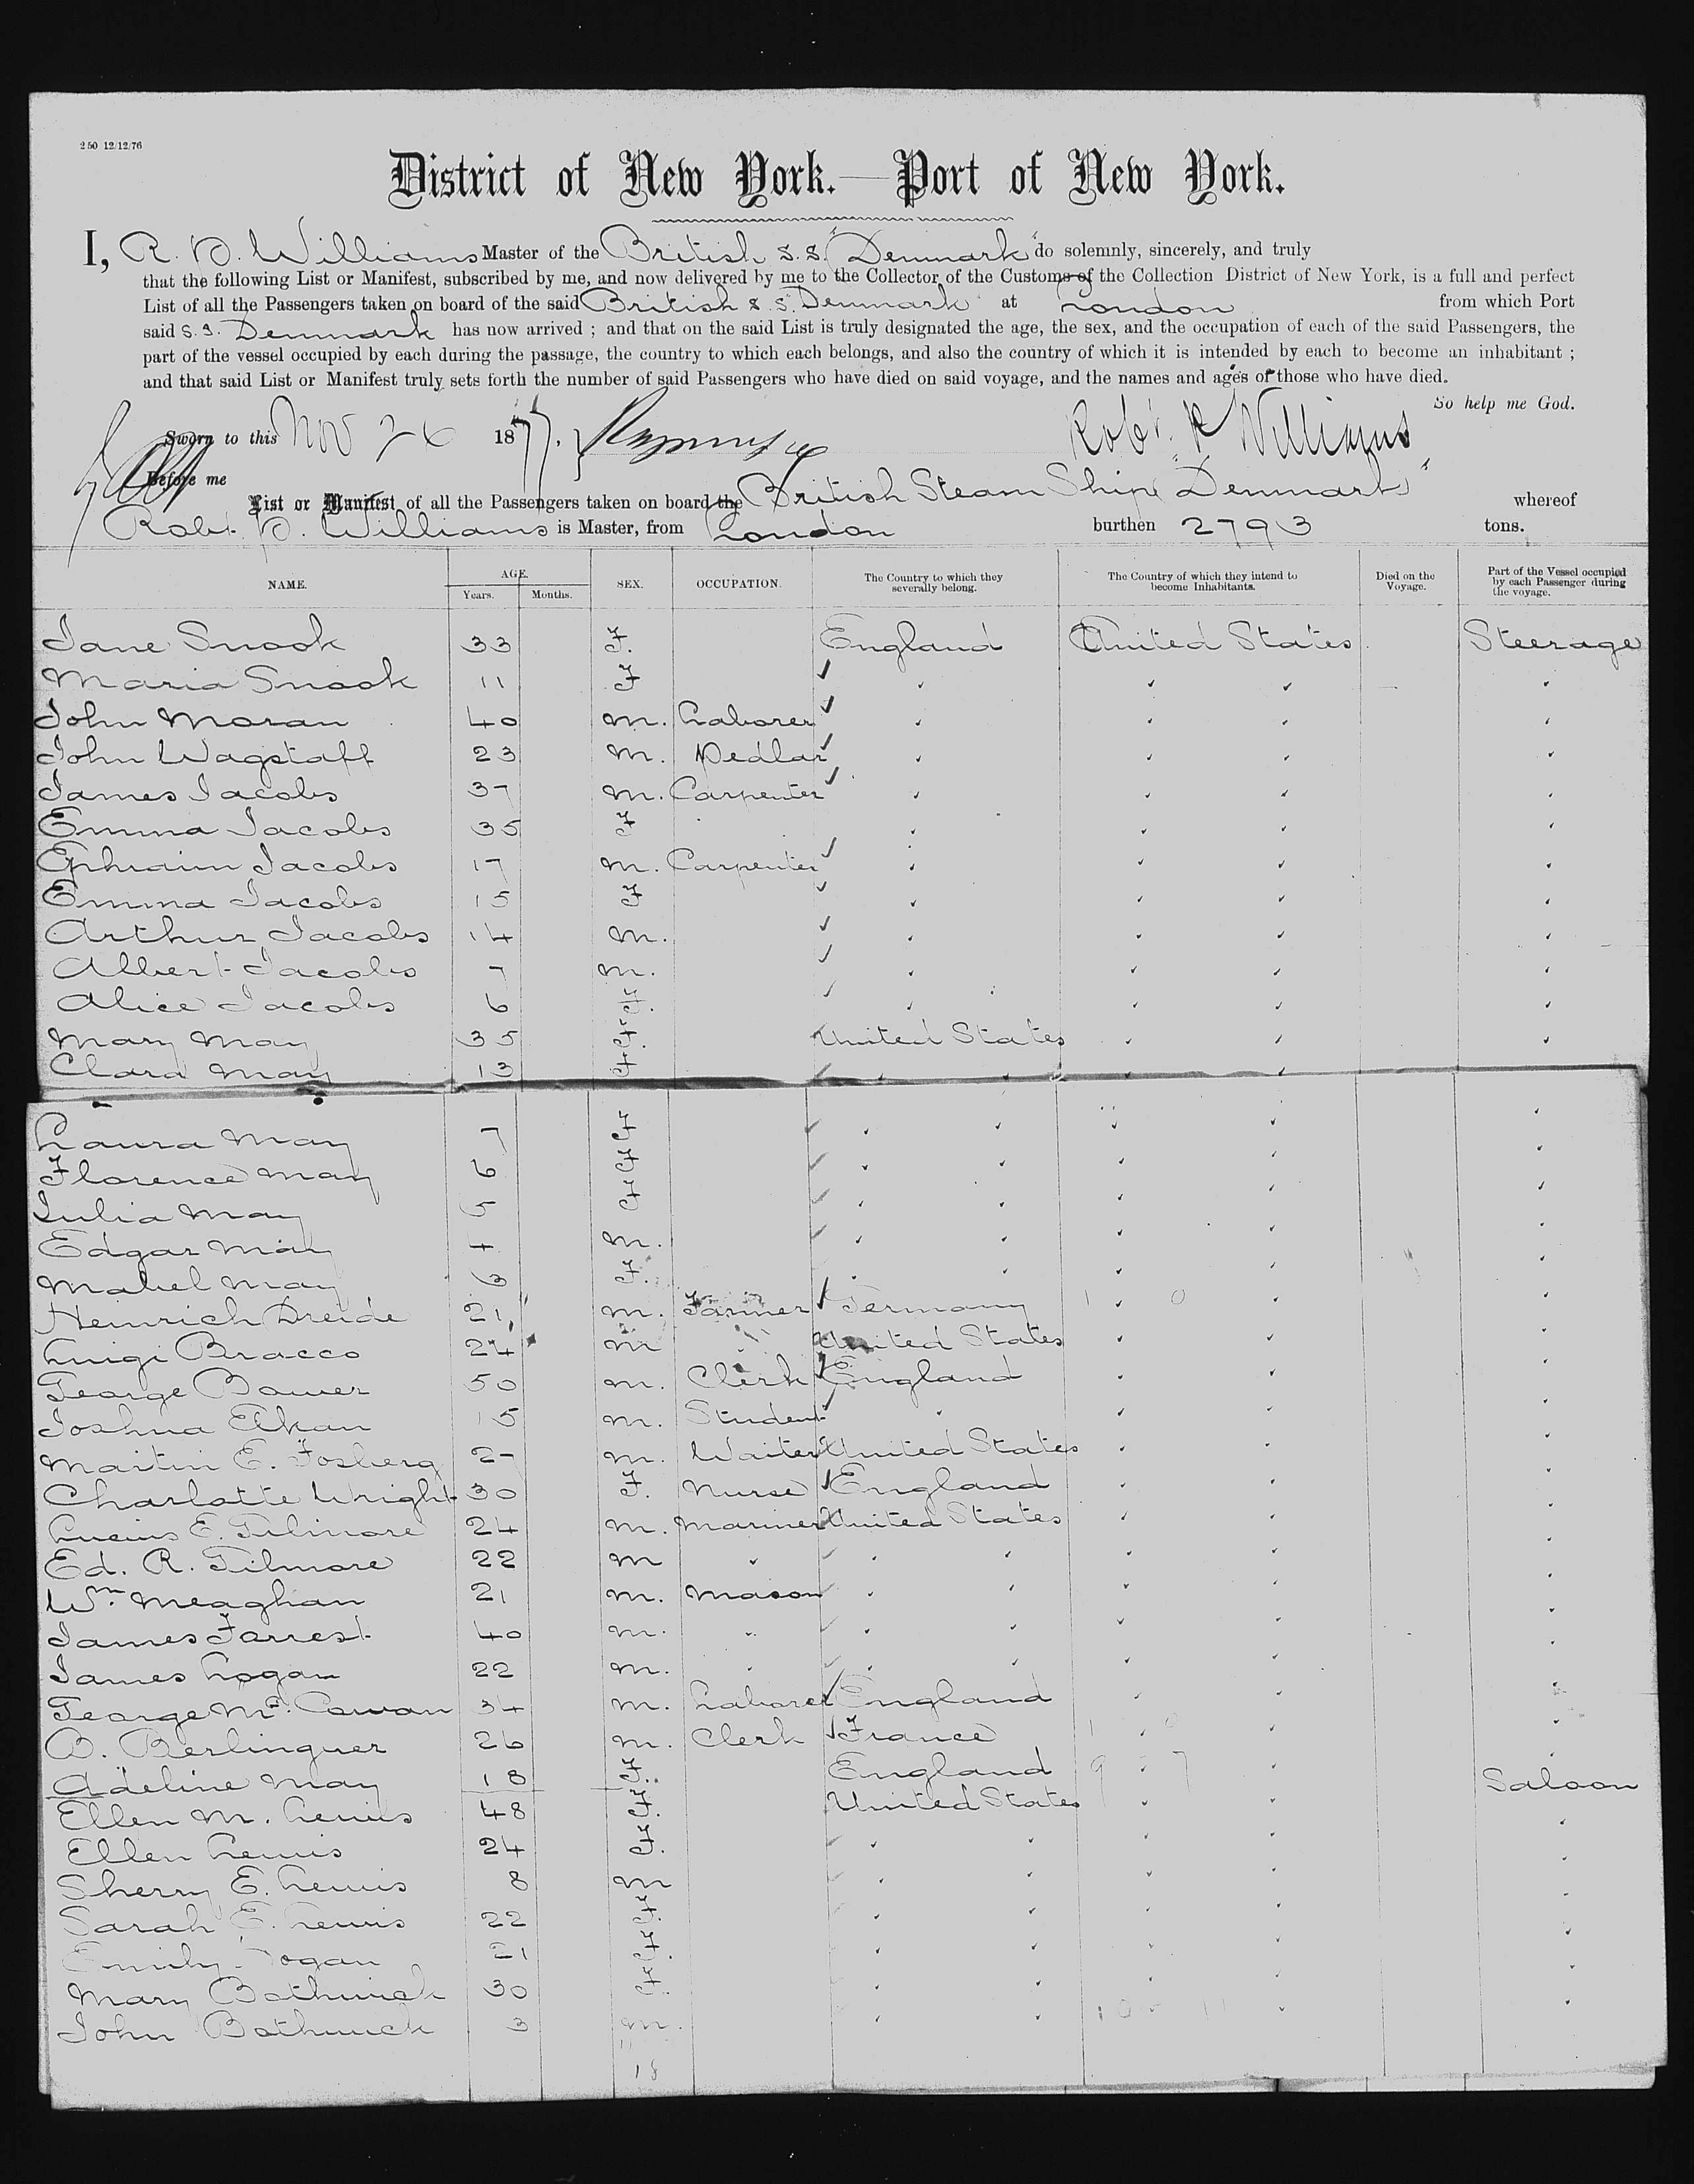 2 50 12/12/76
District of New York.—Port of New York.
I, R. P. Williams Master of the British S.S. "Denmark" do solemnly, sincerely, and truly
that the following List or Manifest, subscribed by me, and now delivered by me to the Collector of the Customs of the Collection District of New York, is a full and perfect
List of all the Passengers taken on board of the said British S.S. Denmark at London from which Port
said S.S. Denmark has now arrived ; and that on the said List is truly designated the age, the sex, and the occupation of each of the said Passengers, the
part of the vessel occupied by each during the passage, the country to which each belongs, and also the country of which it is intended by each to become an inhabitant ;
and that said List or Manifest truly sets forth the number of said Passengers who have died on said voyage, and the names and ages of those who have died.
So help me God.
Sworn to this Nov 26 1877. Robt. P Williams
Before me
List or Manifest of all the Passengers taken on board the British Steam Ship "Denmark" whereof
Robt. P. Williams is Master, from London burthen 2793 tons.
NAME. AGE. Years. Months. SEX. OCCUPATION. The Country to which they severally belong. The Country of which they intend to become Inhabitants. Died on the Voyage. Part of the Vessel occupied by each Passenger during the voyage.
Jane Snook 33 F. England United States Steerage
Maria Snook 11 F
John Moran 40 M. Laborer
John Wagstaff 23 M. Pedlar
James Jacobs 37 M. Carpenter
Emma Jacobs 35 F
Ephraim Jacobs 17 M. Carpenter
Emma Jacobs 15 F
Arthur Jacobs 14 M.
Albert Jacobs 7 M.
Alice Jacobs 6 F.
Mary May 35 F. United States
Clara May 13 F
Laura May 7 F
Florence May 6 F
Julia May 5 F
Edgar May 4 M.
Mabel May 3 F.
Heinrich Dreide 21 M. Farmer Germany
Luigi Bracco 24 M United States
George Bower 50 M. Clerk England
Joshua Elkan 15 M. Student
Martin E. Fosberg 27 M. Waiter United States
Charlotte Wright 30 F. Nurse England
Lucius E. Gilmore 24 M. Mariner United States
Ed. R. Gilmore 22 M
Wm. Meaghan 21 M. Mason
James Farrest 40 M.
James Logan 22 M.
George Mc. Cowan 34 M. Laborer England
B. Berlinguer 26 M. Clerk France
Adeline May 18 F. England Saloon
Ellen M. Lewis 48 F. United States
Ellen Lewis 24 F.
Sherry E. Lewis 8 M
Sarah E. Lewis 22 F
Emily Logan 21 F.
Mary Bothwick 30 F.
John Bothwick 3 M.
18